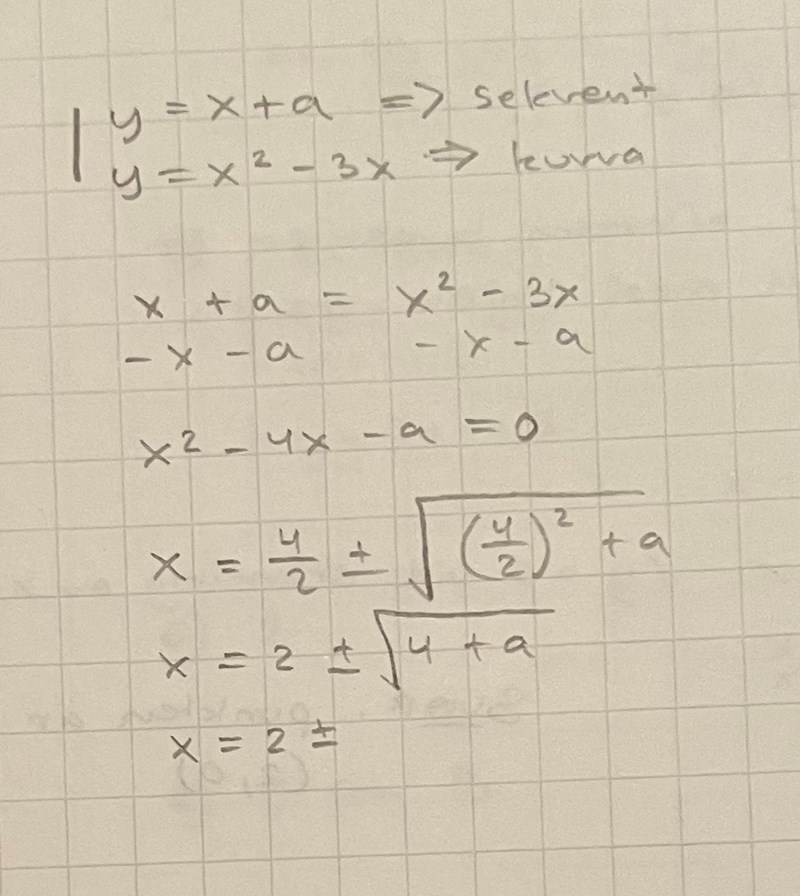 y = x + a => sekvent
y = x² - 3x => kurva
x + a = x² - 3x
- x - a - x - a
x² - 4x - a = 0
x = 4/2 ± √((4/2)² + a)
x = 2 ± √(4 + a)
x = 2 ±